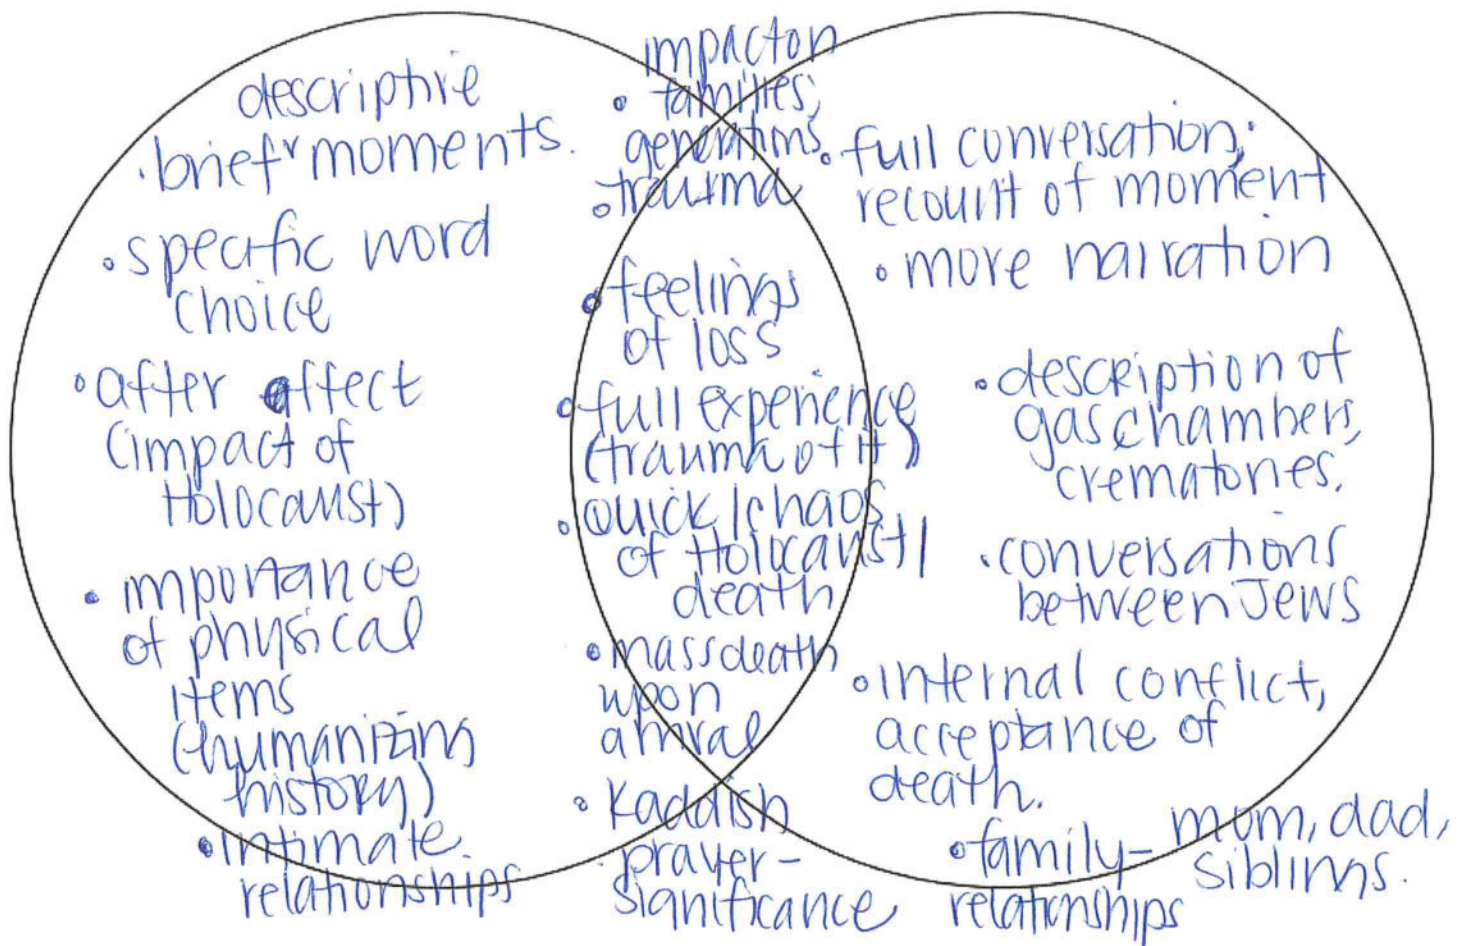 descriptive
• brief moments.
• specific word
choice
• after affect
(impact of
Holocaust)
• importance
of physical
items
(humanizing
history)
• intimate
relationships
impact on
• families,
generations
• trauma
• feelings
of loss
• full experience
(trauma of it)
• Quick/chaos
of Holocaust/
death
• mass death
upon
arrival
• Kaddish
prayer-
significance
• full conversation,
recount of moment
• more narration
• description of
gas chambers,
crematories.
• conversations
between Jews
• internal conflict,
acceptance of
death.
• family- mom, dad,
siblings.
relationships